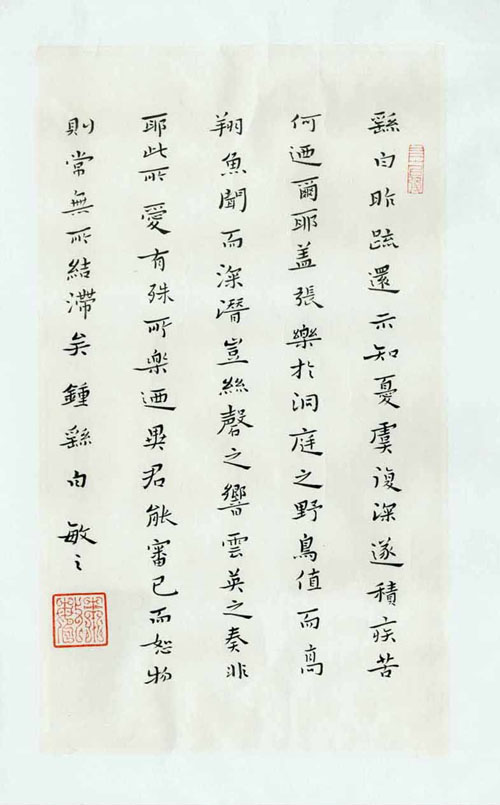 繇白昨疏還示知憂虞復深遂積疾苦
何迺爾耶盖張樂於洞庭之野鳥值而高
翔魚聞而深潛豈絲磬之響雲英之奏非
耶此所愛有殊所楽迺異君能審己而恕物
則常無所結滯矣鍾繇白 敏之